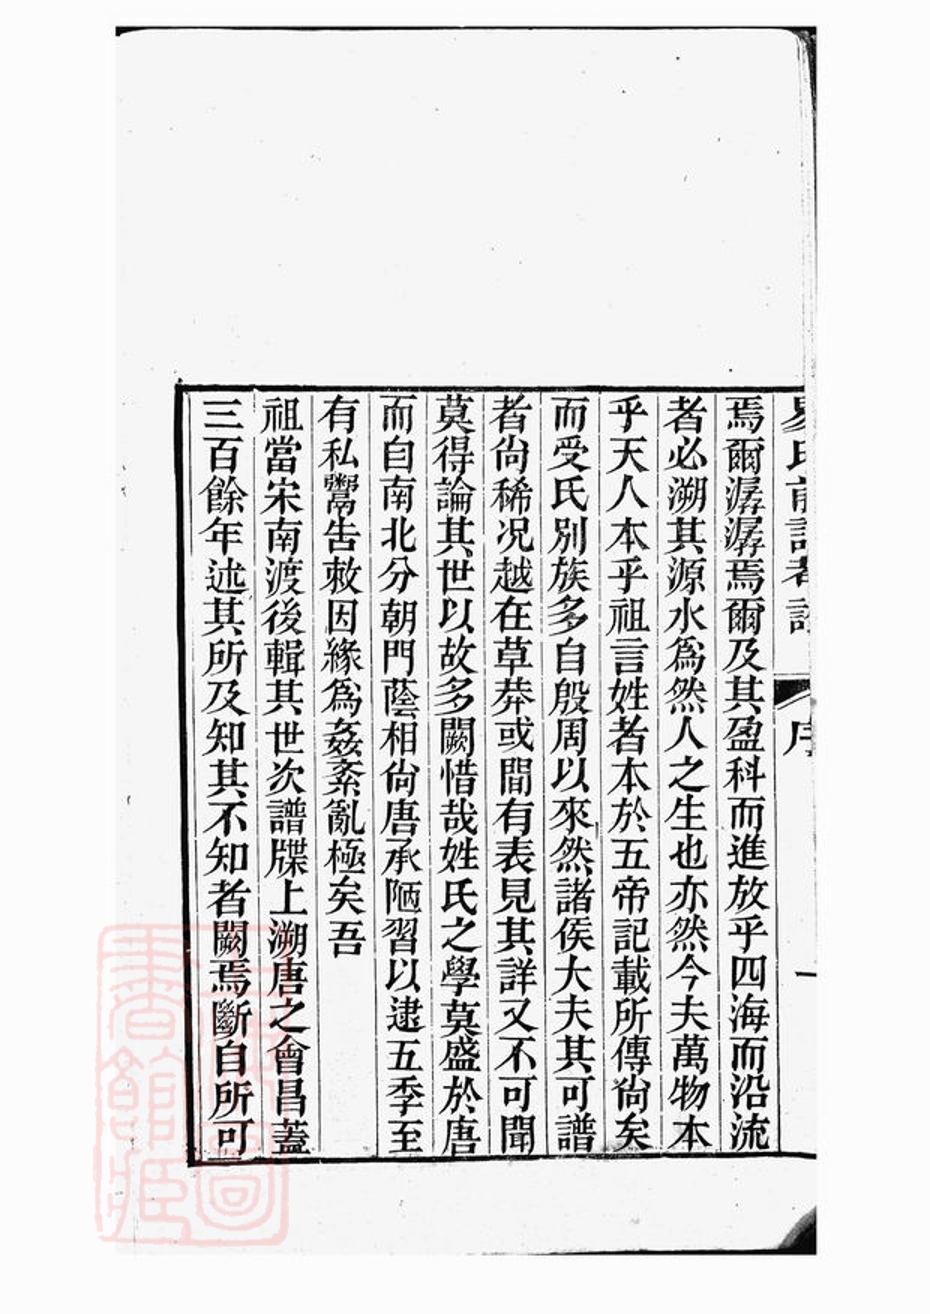 焉爾潺潺焉爾及其盈科而進放乎四海而沿流
者必溯其源水爲然人之生也亦然今夫萬物本
乎天人本乎祖言姓者本於五帝記載所傳尙矣
而受氏別族多自殷周以來然諸侯大夫其可譜
者尙稀况越在草莽或間有表見其詳又不可聞
莫得論其世以故多闕惜哉姓氏之學莫盛於唐
而自南北分朝門蔭相尙唐承陋習以逮五季至
有私鬻告敕因緣爲姦紊亂極矣吾
祖當宋南渡後輯其世次譜牒上溯唐之會昌蓋
三百餘年述其所及知其不知者闕焉斷自所可
序
一